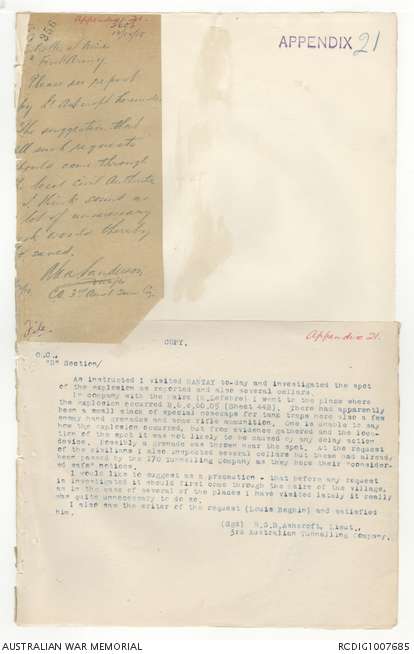 Appendix 21.
256
3605
APPENDIX 21
of Mines
Army
Please see report
by Lt Ashcroft herewith.
The suggestion that
all such requests
should come through
local civil Authority
I think sound as
lot of unnecessary
work would thereby
saved.
Major
CO. 3rd Aust Tunn Coy
File.
Appendix 21.
COPY.
O.C.,
"D" Section/
As instructed I visited HANTAY to-day and investigated the spot
of the explosion as reported and also several cellars.
In company with the Maire (M.Lefebre) I went to the place where
the explosion occurred (Sheet 44B). There had apparently
been a small stack of special nosecaps for tank traps here also a few
enemy hand grenades and some rifle ammunition. One is unable to say
how the explosion occurred, but from evidence gathered and the loca-
tion of the spot it was not likely to be caused by any delay action
device. Possibly a grenade was thrown near the spot. At the request
of the civilians I also inspected several cellars but these had already
been passed by the 170 Tunnelling Company as they bore their "consider-
ed safe" notices.
I would like to suggest as a precaution - that before any request
is investigated it should first come through the maire of the village,
as in the case of several of the places I have visited lately it really
was quite unnecessary to do so.
I also saw the writer of the request (Louis Beghin) and satisfied
him.
(Sgd) R.G.D.Ashcroft, Lieut.,
3rd Australian Tunnelling Company.
AUSTRALIAN WAR MEMORIAL
RCDIG1007685